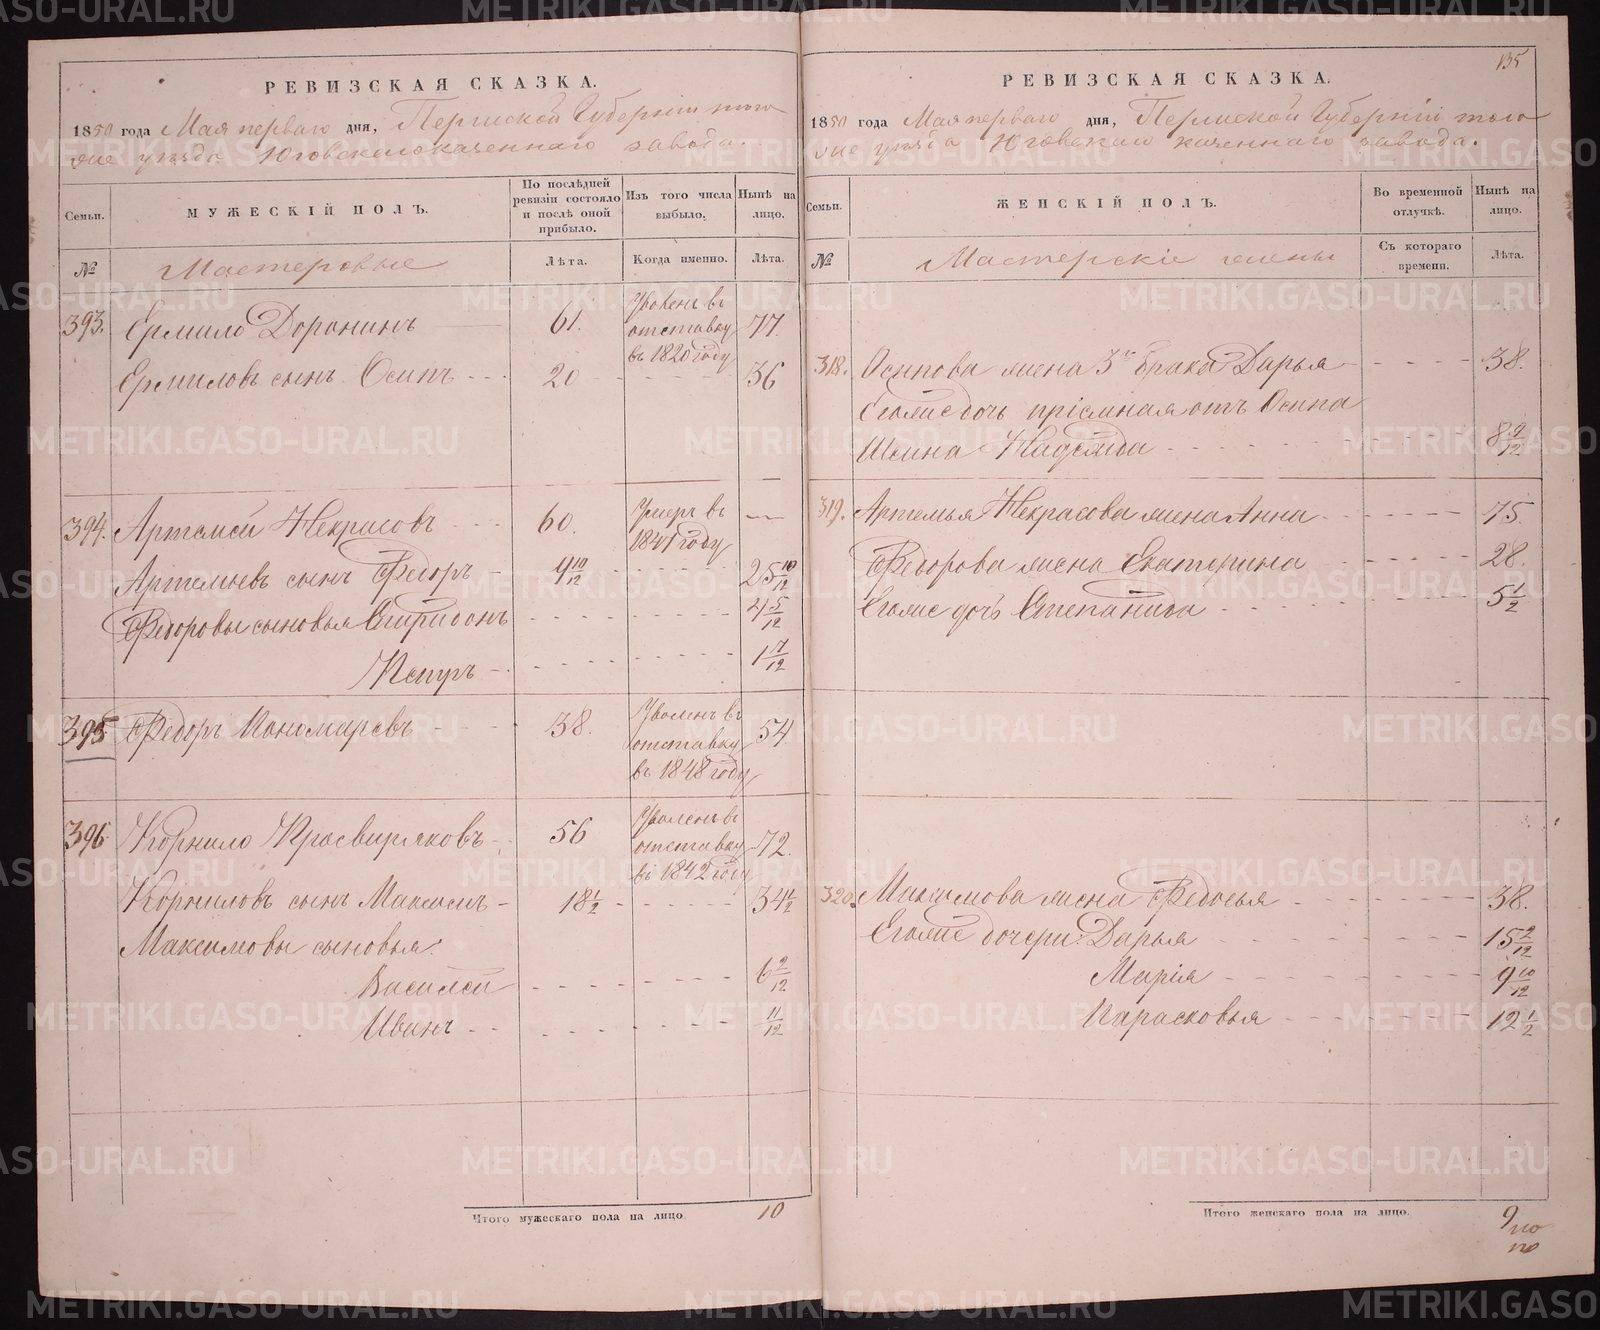 РЕВИЗСКАЯ СКАЗКА.
1850 года Мая перваго дня, Пермской Губернiи того
же уѣзда Юговскаго казеннаго завода.
Семьи.
МУЖЕСКIЙ ПОЛЪ.
По послѣдней ревизiи состояло и послѣ оной прибыло.
Изъ того числа выбыло.
Нынѣ на лицо.
№
Мастеровые
Лѣта.
Когда именно.
Лѣта.
393. Ермило Доронинъ 61. Уволенъ въ отставку въ 1820 году 77.
Ермиловъ сынъ Осипъ 20 36
394. Артемей Некрасовъ 60. Умеръ въ 1841 году —
Артемьевъ сынъ Федоръ 9 10/12 25 10/12
Федоровы сыновья Спиридонъ 4 5/12
Петръ 1 7/12
395 Федоръ Пономаревъ 38. Уволенъ въ отставку въ 1848 году 54.
396 Корнило Просвиряковъ 56 Уволенъ въ отставку въ 1842 году 72.
Корниловъ сынъ Максимъ 18 1/2 34 1/2
Максимовы сыновья:
Василей 6 2/12
Иванъ 11/12
Итого мужескаго пола на лицо. 10
135
РЕВИЗСКАЯ СКАЗКА.
1850 года Мая перваго дня, Пермской Губернiи того
же уѣзда Юговскаго казеннаго завода.
Семьи.
ЖЕНСКIЙ ПОЛЪ.
Во временной отлучкѣ.
Нынѣ на лицо.
№
Мастерскiе жены
Съ котораго времени.
Лѣта.
318. Осипова жена 3го брака Дарья 38.
Его же дочь прiемная отъ Осипа
Шеина Надежда 8 9/12
319. Артемья Некрасова жена Анна 75.
Федорова жена Екатерина 28.
Его же дочь Степанида 5 1/2
320. Максимова жена Федосья 38.
Его же дочери: Дарья 15 2/12
Марiя 9 10/12
Парасковья 12 1/2
Итого женскаго пола на лицо. 9
METRIKI.GASO-URAL.RU